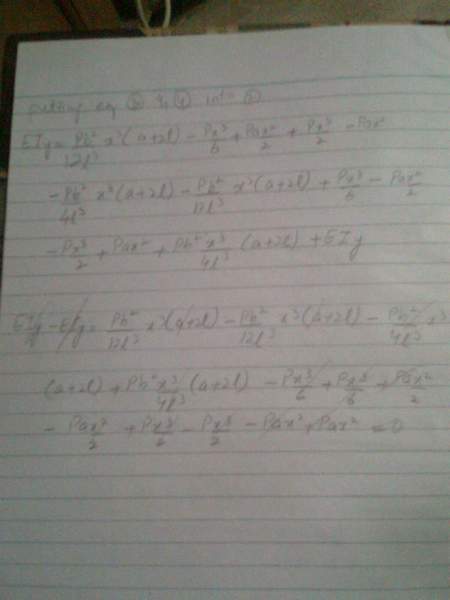 putting eq ③ & ④ into ②
EIy = Pb²/12l³ x³(a+2l) - Px³/6 + Pax²/2 + Px³/2 - Pax²
- Pb²/4l³ x³(a+2l) - Pb²/12l³ x³(a+2l) + Px³/6 - Pax²/2
- Px³/2 + Pax² + Pb²x³/4l³ (a+2l) + EIy
EIy - EIy = Pb²/12l³ x³(a+2l) - Pb²/12l³ x³(a+2l) - Pb²/4l³ x³
(a+2l) + Pb²x³/4l³ (a+2l) - Px³/6 + Px³/6 + Pax²/2
- Pax²/2 + Px³/2 - Px³/2 - Pax² + Pax² = 0